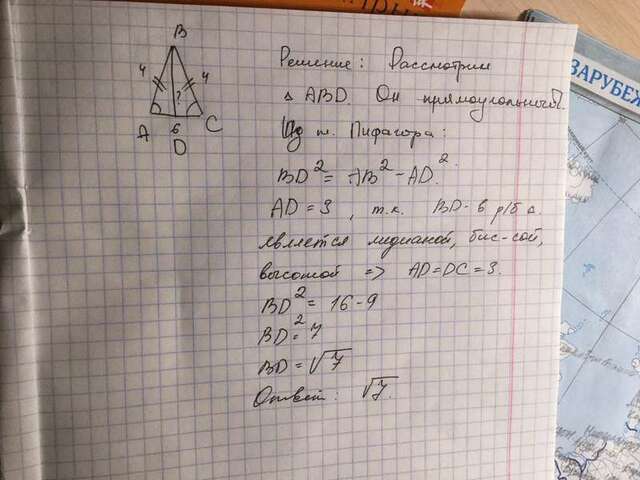 B
4 4
?
A 6 C
D
Решение: Рассмотрим
△ ABD. Он прямоугольной.
Из т. Пифагора:
BD² = AB² - AD².
AD = 3, т.к. BD - в р/б △
является медианой, бис-сой,
высотой => AD = DC = 3.
BD² = 16 - 9
BD² = 7
BD = √7
Ответ: √7.
ЗАРУБЕЖ